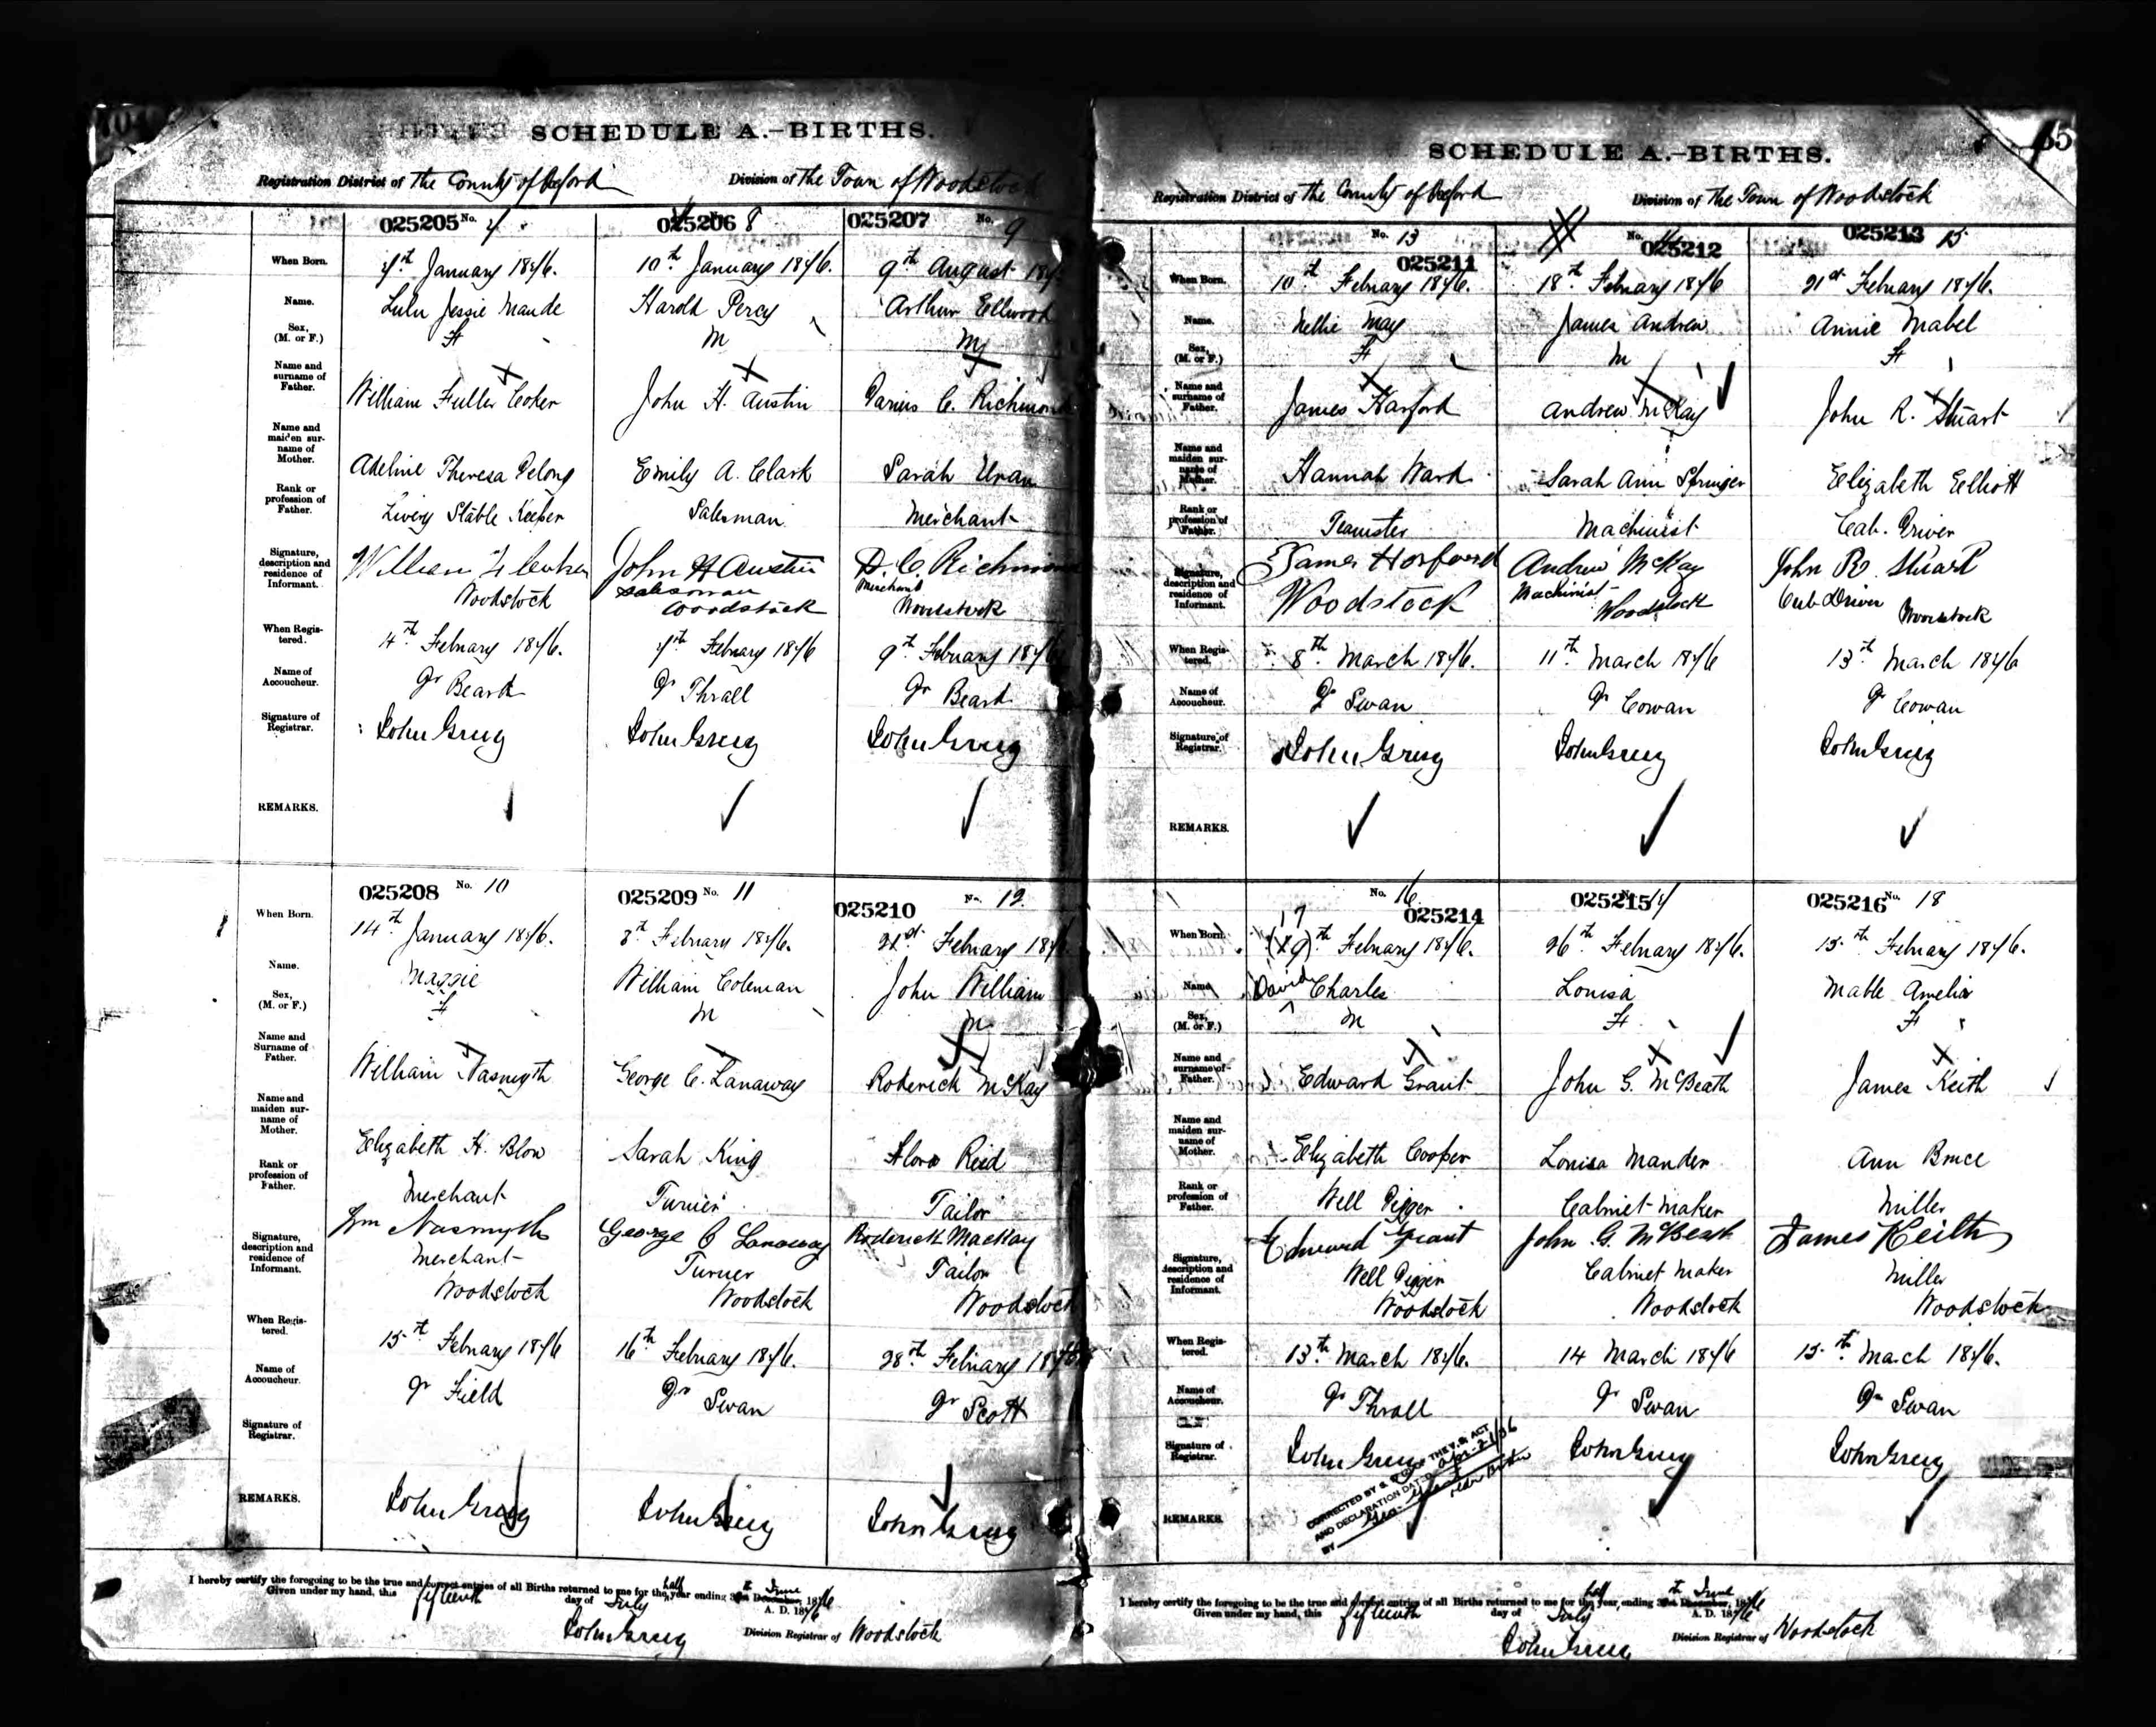 SCHEDULE A.—BIRTHS.
Registration District of The County of Oxford Division of The Town of Woodstock
025205 No. 7 025206 8 025207 No. 9
When Born. 7th January 1876. 10th January 1876. 9th August 187
Name. Lulu Jessie Maude Harold Percy Arthur Ellwood
Sex, (M. or F.) F M M
Name and surname of Father. William Fuller Coker John H. Austin Darius C. Richmond
Name and maiden surname of Mother. Adeline Theresa Delong Emily A. Clark Sarah
Rank or profession of Father. Livery Stable Keeper Salesman Merchant
Signature, description and residence of Informant. William F John H Austin D. C. Richmond
Woodstock Salesman Woodstock Merchant Woodstock
When Registered. 4th February 1876. 7th February 1876 9th February 1876
Name of Accoucheur. Dr Beard Dr Thrall Dr Beard
Signature of Registrar. John Greig John Greig John Greig
REMARKS.
025208 No. 10 025209 No. 11 025210 No. 12
When Born. 14th January 1876. 8th February 1876. 21st February 187
Name. Maggie William Coleman John William
Sex, (M. or F.) F M M
Name and Surname of Father. William Nasmyth George C. Lanaway Roderick McKay
Name and maiden surname of Mother. Elizabeth H. Blow Sarah King Flora Reid
Rank or profession of Father. Merchant Turner Tailor
Signature, description and residence of Informant. Wm Nasmyth George C Lanaway Roderick MacKay
Merchant Turner Tailor
Woodstock Woodstock Woodstock
When Registered. 15th February 1876 16th February 1876. 28th February 1876
Name of Accoucheur. Dr Field Dr Swan Dr Scott
Signature of Registrar.
REMARKS. John Greig John Greig John Greig
I hereby certify the foregoing to be the true and correct entries of all Births returned to me for the half year ending 30th June 1876
Given under my hand, this fifteenth day of July A. D. 1876
John Greig Division Registrar of Woodstock
SCHEDULE A.—BIRTHS.
65
Registration District of The County of Oxford Division of The Town of Woodstock
No. 13 025211 No. 14 025212 025213 15
When Born. 10th February 1876. 18th February 1876 21st February 1876.
Name. Nellie May James Andrew Annie Mabel
Sex, (M. or F.) F M F
Name and surname of Father. James Harford Andrew McKay John R. Stuart
Name and maiden surname of Mother. Hannah Ward Sarah Ann Springer Elizabeth Elliott
Rank or profession of Father. Teamster Machinist Cab. Driver
Signature, description and residence of Informant. James Horford Andrew McKay John R. Stuart
Woodstock Machinist Woodstock Cab Driver Woodstock
When Registered. 8th March 1876. 11th March 1876 13th March 1876
Name of Accoucheur. Dr Swan Dr Cowan Dr Cowan
Signature of Registrar. John Greig John Greig John Greig
REMARKS.
No. 16 025214 025215 17 025216 No. 18
17
When Born. (29)th February 1876. 26th February 1876. 15th February 1876.
Name. David Charles Louisa Mable Amelia
Sex, (M. or F.) M F F
Name and surname of Father. Edward Grant John G. McBeath James Keith
Name and maiden surname of Mother. Elizabeth Cooper Louisa Mander Ann Bruce
Rank or profession of Father. Well Digger Cabinet Maker Miller
Signature, description and residence of Informant. Edward Grant John G. McBeath James Keith
Well Digger Cabinet Maker Miller
Woodstock Woodstock Woodstock
When Registered. 13th March 1876. 14 March 1876 15th March 1876.
Name of Accoucheur. Dr Thrall Dr Swan Dr Swan
Signature of Registrar. John Greig John Greig John Greig
REMARKS.
CORRECTED BY OF THE V. S. ACT
AND DECLARATION DATED
BY
I hereby certify the foregoing to be the true and correct entries of all Births returned to me for the half year, ending 30th June 1876
Given under my hand, this fifteenth day of July A. D. 1876
John Greig Division Registrar of Woodstock